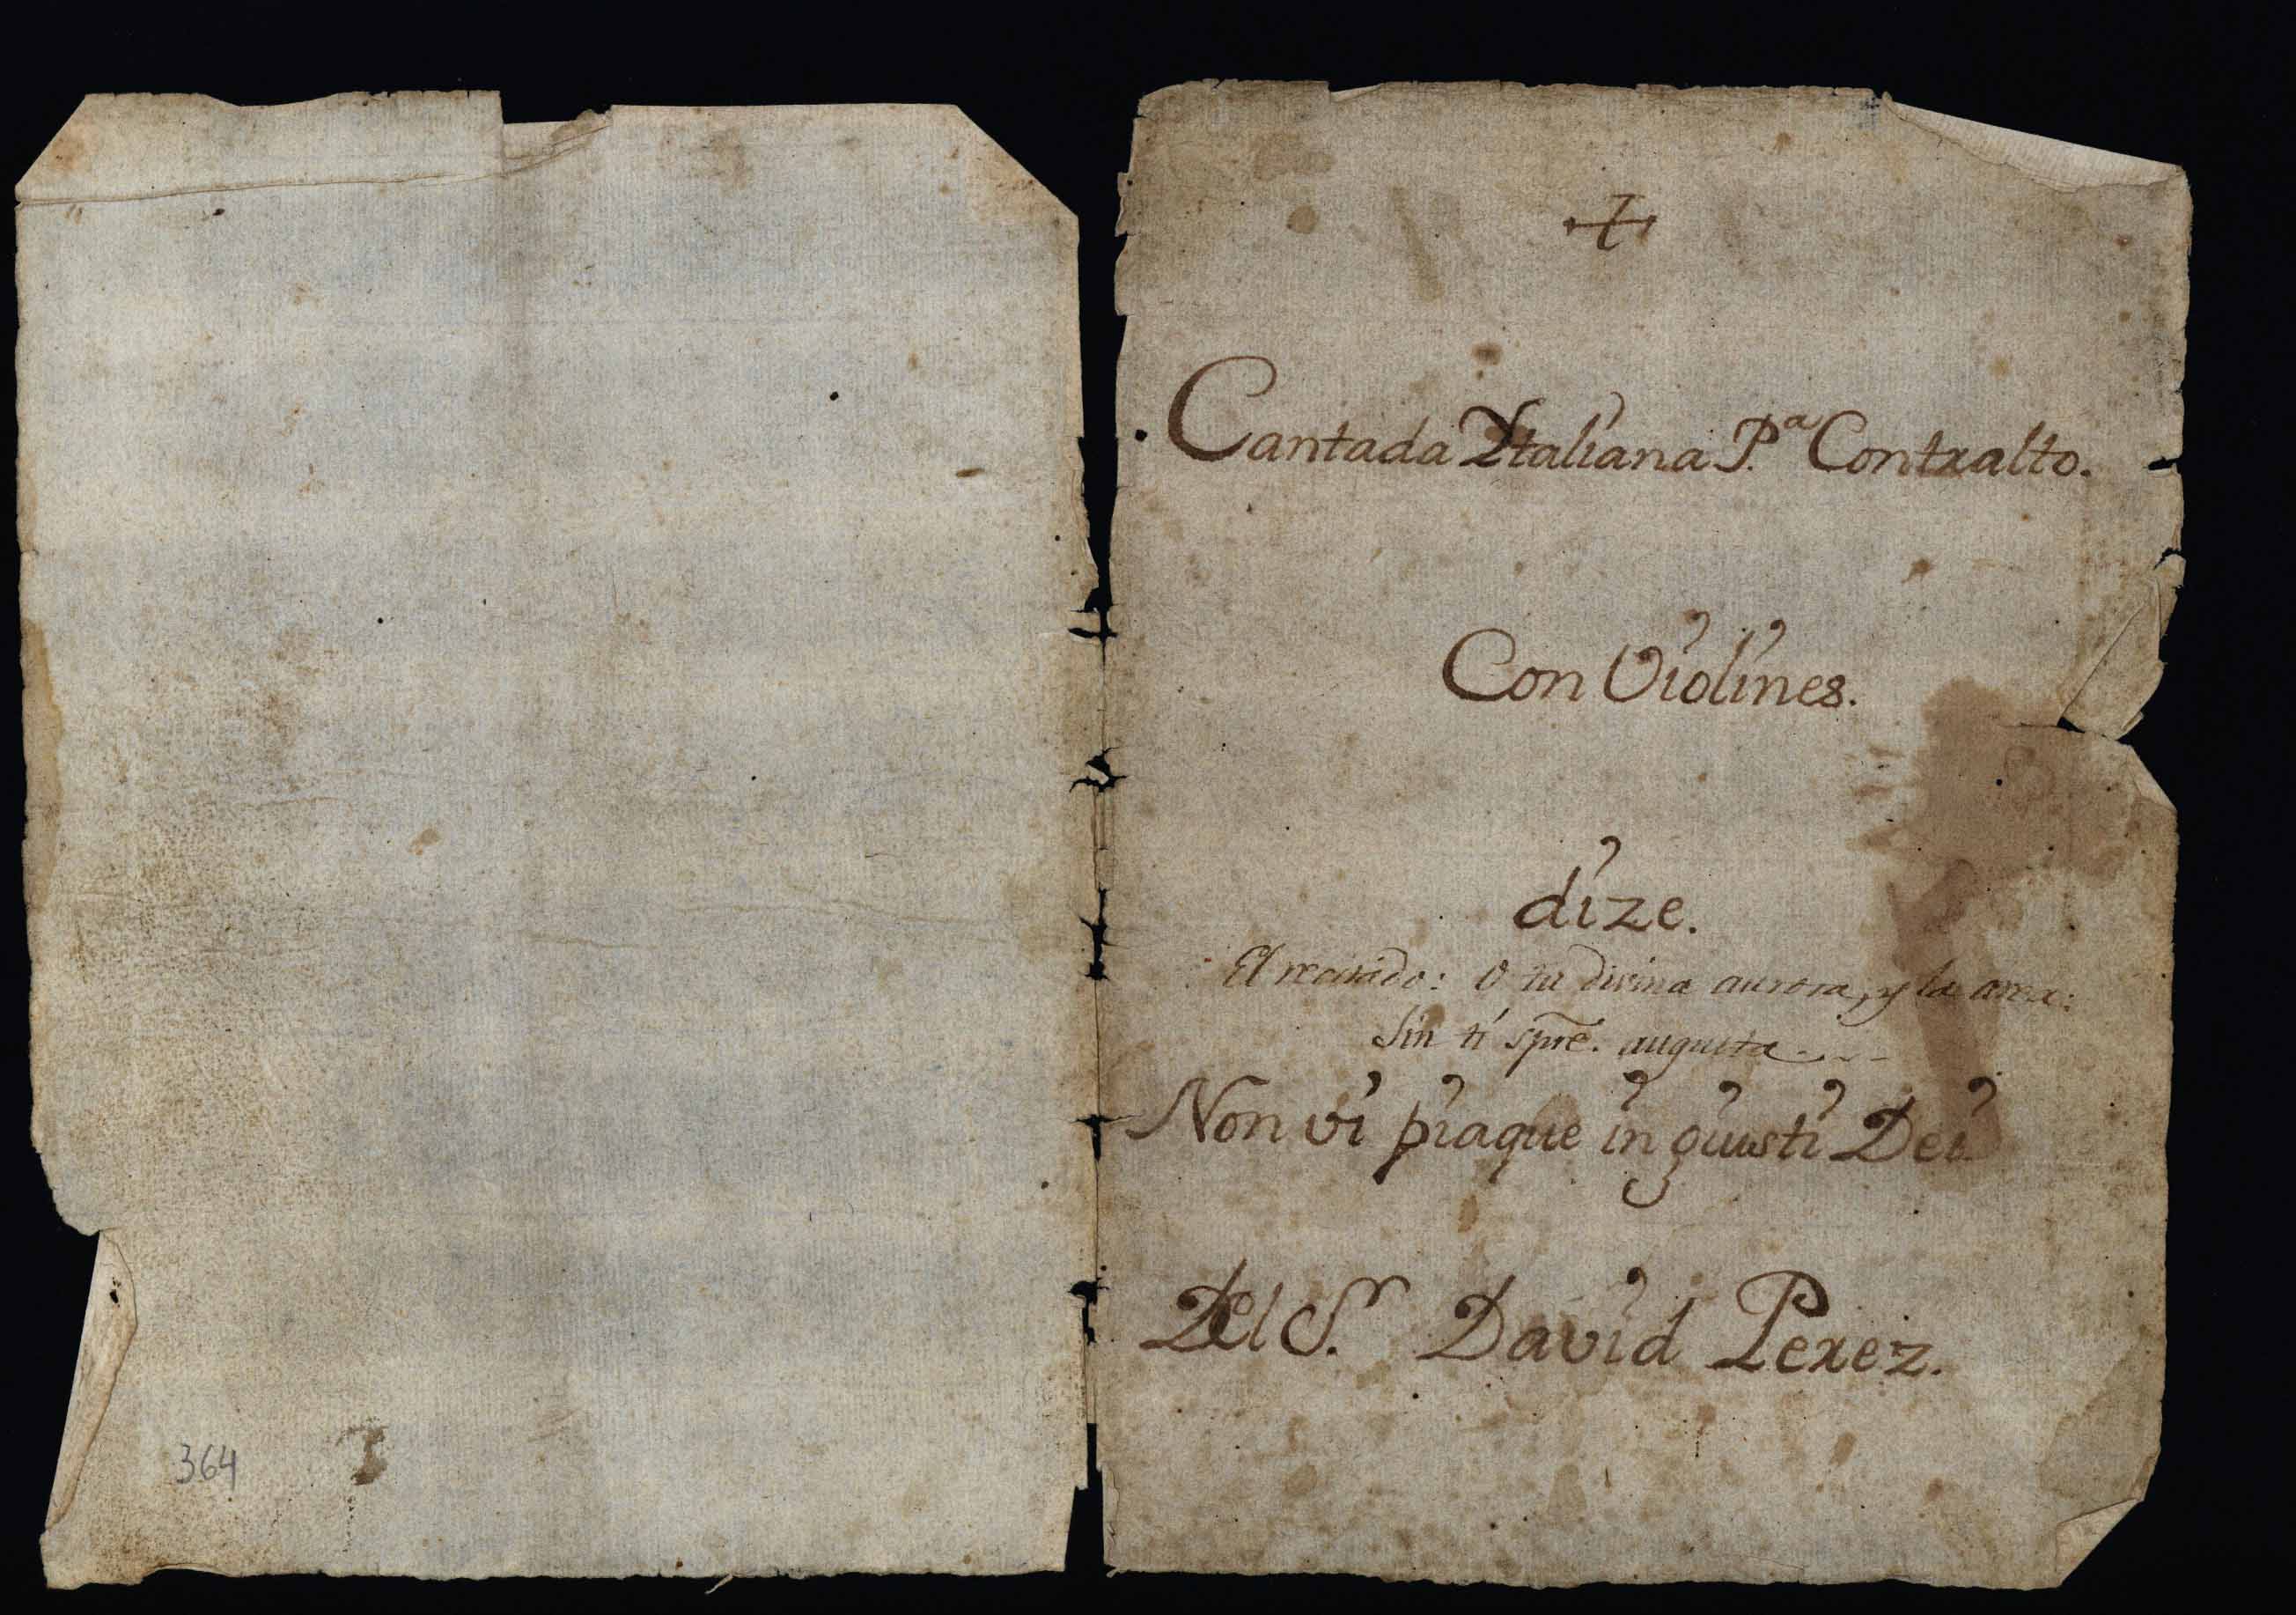 364
Cantada Ytaliana P.ª Contralto.
Con Violines.
dize.
El recitado: O tu divina aurora, y la area:
Sin ti spre. augusta
Non vi piaque in giusti Dei
Del S.r David Perez.